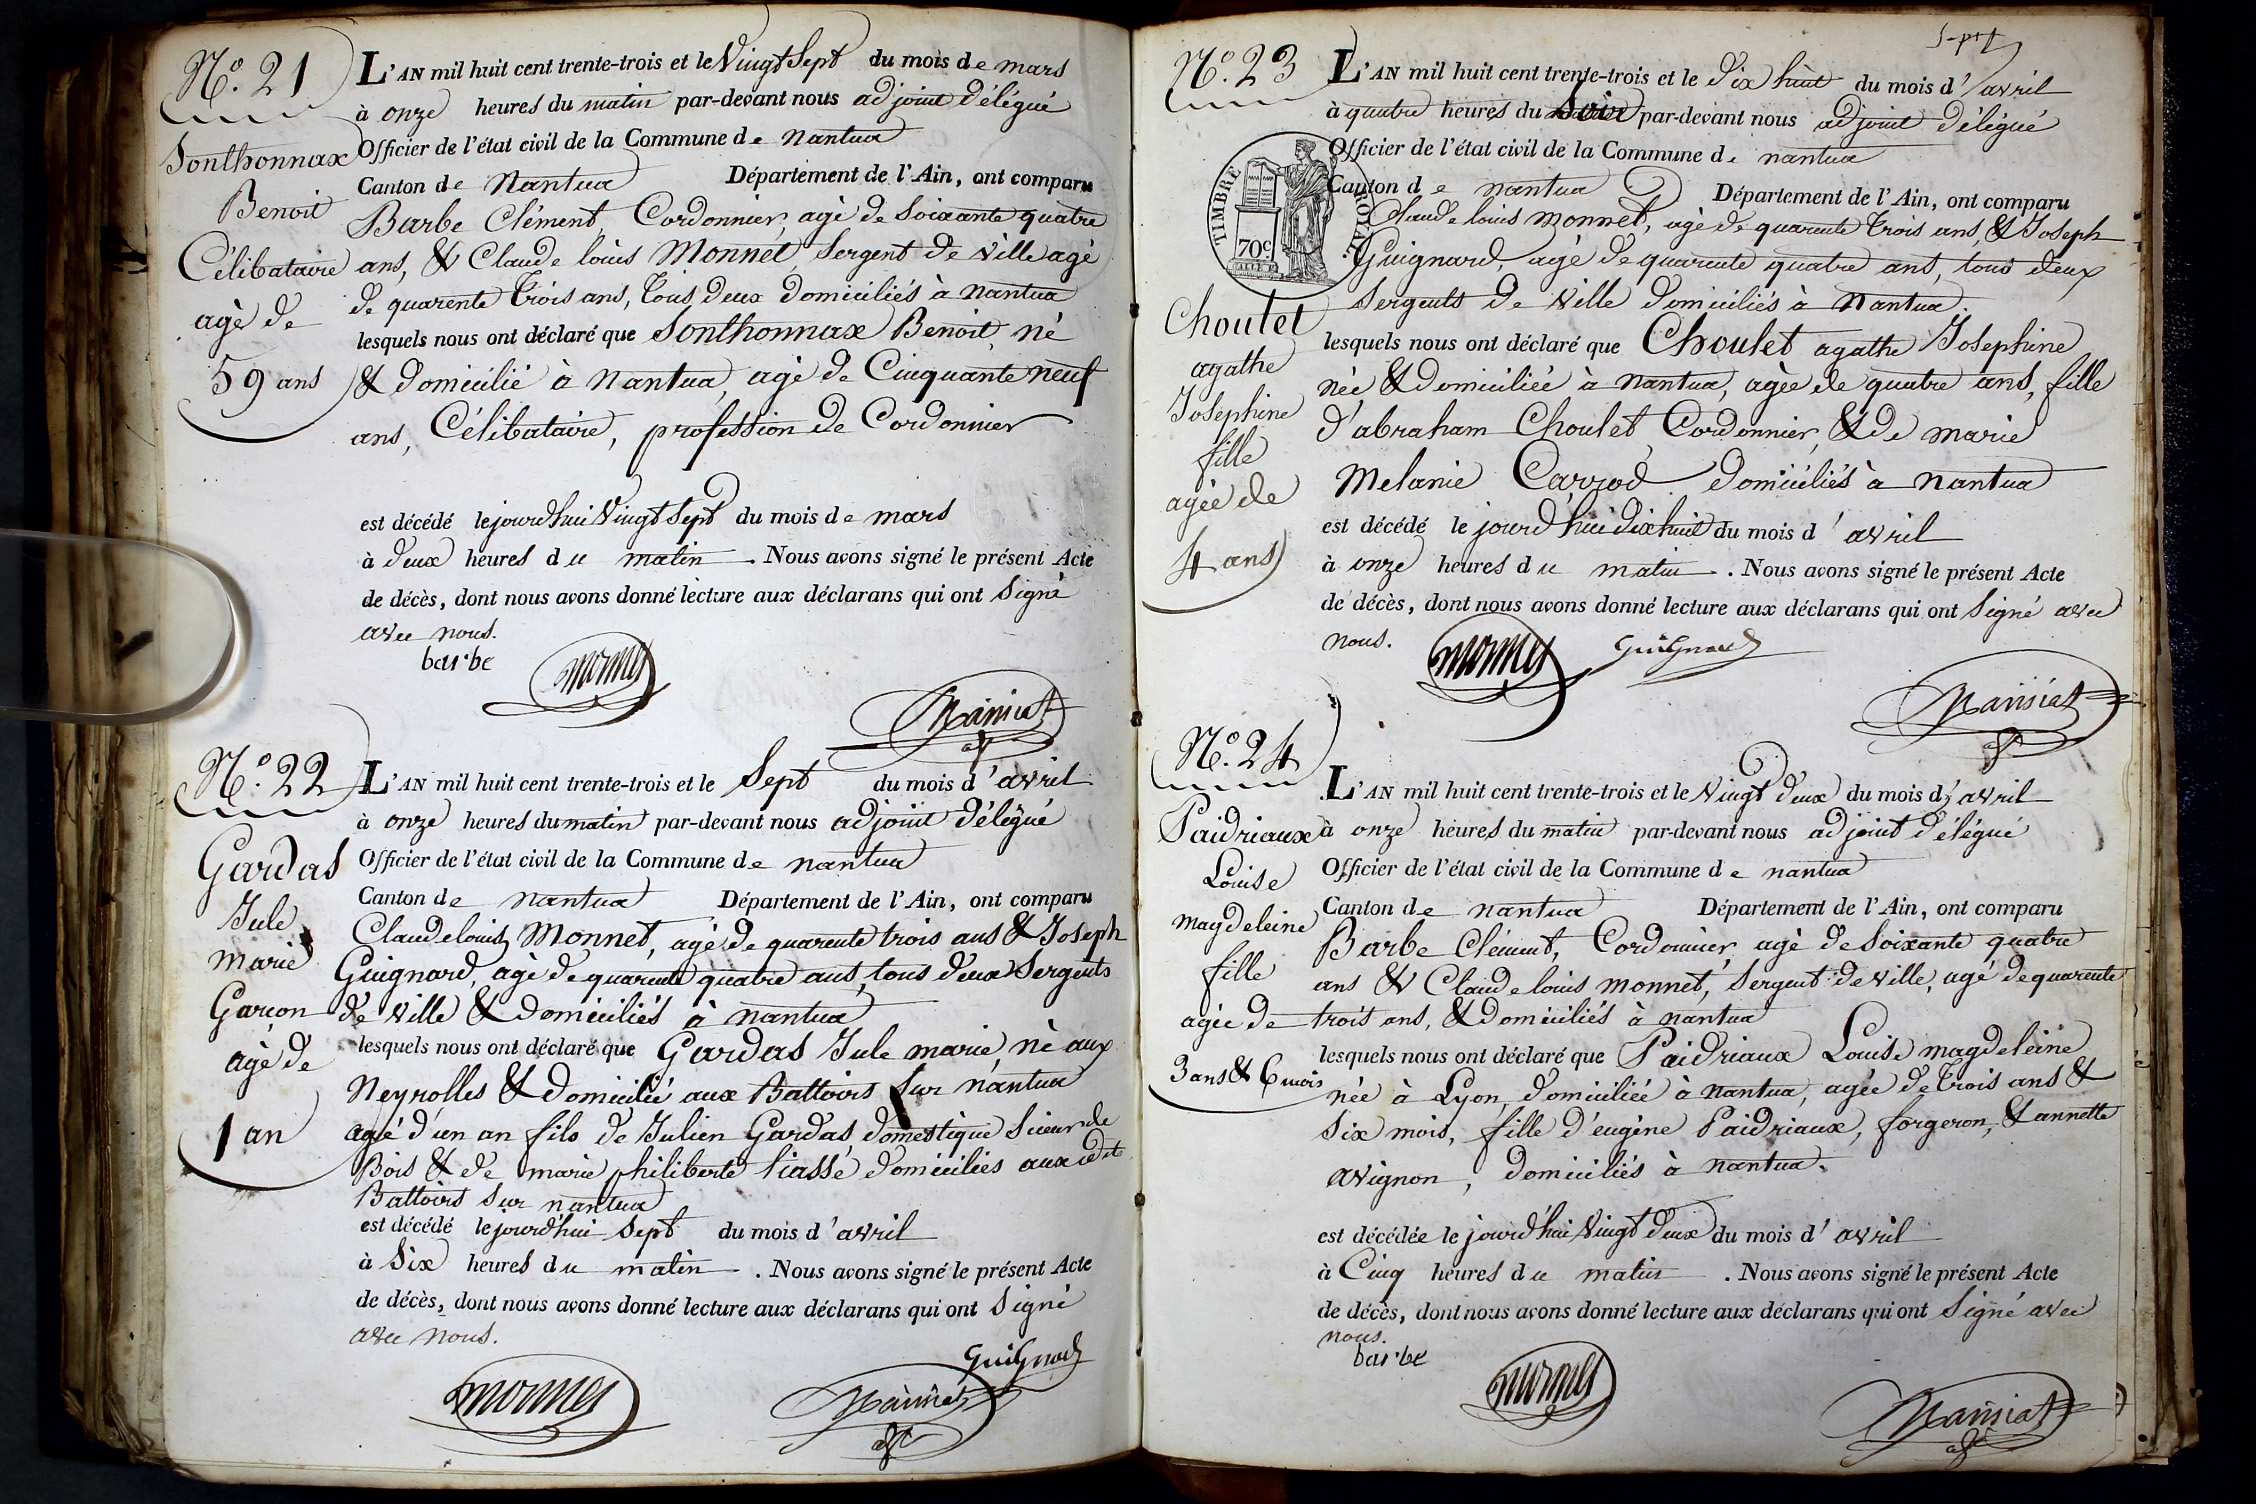 N.° 21
Sonthonnax
Benoit
Célibataire
agé de
59 ans
L'AN mil huit cent trente-trois et le Vingt Sept du mois de mars
à onze heures du matin par-devant nous adjoint délégué
Officier de l'état civil de la Commune de nantua
Canton de Nantua Département de l'Ain, ont comparu
Barbe Clément, Cordonnier, agé de Soixante quatre
ans, & Claude louis Monnet, Sergent de Ville agé
de quarente trois ans, tous deux domiciliés à nantua
lesquels nous ont déclaré que Sonthonnax Benoit, né
& domicilié à nantua, agé de Cinquante neuf
ans, Célibataire, profession de Cordonnier
est décédé le jourd'hui Vingt Sept du mois de mars
à deux heures du matin. Nous avons signé le présent Acte
de décès, dont nous avons donné lecture aux déclarans qui ont Signé
avec nous.
barbe monnet
Mansiat
N.° 22
Gardas
Jule
marie
Garcon
agé de
1 an
L'AN mil huit cent trente-trois et le Sept du mois d'avril
à onze heures du matin par-devant nous adjoint délégué
Officier de l'état civil de la Commune de nantua
Canton de nantua Département de l'Ain, ont comparu
Claude louis Monnet, agé de quarente trois ans & Joseph
Guignard, agé de quarente quatre ans, tous deux Sergents
de Ville & domiciliés à nantua
lesquels nous ont déclaré que Gardas Jule marie, né aux
Neyrolles & domicilié aux Battoirs Sur nantua
agé d'un an fils de Julien Gardas domestique Scieur de
Bois & de marie philiberte domiciliés aux dts
Battoirs Sur nantua
est décédé le jourd'hui Sept du mois d'avril
à Six heures du matin. Nous avons signé le présent Acte
de décès, dont nous avons donné lecture aux déclarans qui ont Signé
avec nous.
Guignard
monnet Mansiat
Sept
N.° 23
Choulet
agathe
Josephine
fille
agée de
4 ans
TIMBRE ROYAL
70c
L'AN mil huit cent trente-trois et le dix huit du mois d'avril
à quatre heures du Soir par-devant nous adjoint délégué
Officier de l'état civil de la Commune de nantua
Canton de nantua Département de l'Ain, ont comparu
Claude louis Monnet, agé de quarente trois ans, & Joseph
Guignard, agé de quarente quatre ans, tous deux
Sergents de Ville domiciliés à nantua.
lesquels nous ont déclaré que Choulet agathe Josephine
née & domiciliée à nantua, agée de quatre ans, fille
d'abraham Choulet, Cordonnier, & de marie
Melanie Carrod domiciliés à nantua
est décédé le jourd'hui dix huit du mois d'avril
à onze heures du matin. Nous avons signé le présent Acte
de décès, dont nous avons donné lecture aux déclarans qui ont Signé avec
nous.
monnet Guignard
Mansiat
N.° 24
Paidriaux
Louise
magdeleine
fille
agée de
3 ans & 6 mois
L'AN mil huit cent trente-trois et le Vingt deux du mois d'avril
à onze heures du matin par-devant nous adjoint délégué
Officier de l'état civil de la Commune de nantua
Canton de nantua Département de l'Ain, ont comparu
Barbe Clément, Cordonnier, agé de Soixante quatre
ans & Claude louis monnet, Sergent de Ville, agé de quarente
trois ans, & domiciliés à nantua
lesquels nous ont déclaré que Paidriaux Louise magdeleine
née à Lyon, domiciliée à nantua, agée de trois ans &
Six mois, fille d'eugène Paidriaux, forgeron, & annette
avignon, domiciliés à nantua.
est décédée le jourd'hui Vingt deux du mois d'avril
à Cinq heures du matin. Nous avons signé le présent Acte
de décès, dont nous avons donné lecture aux déclarans qui ont Signé avec
nous.
barbe
monnet
Mansiat